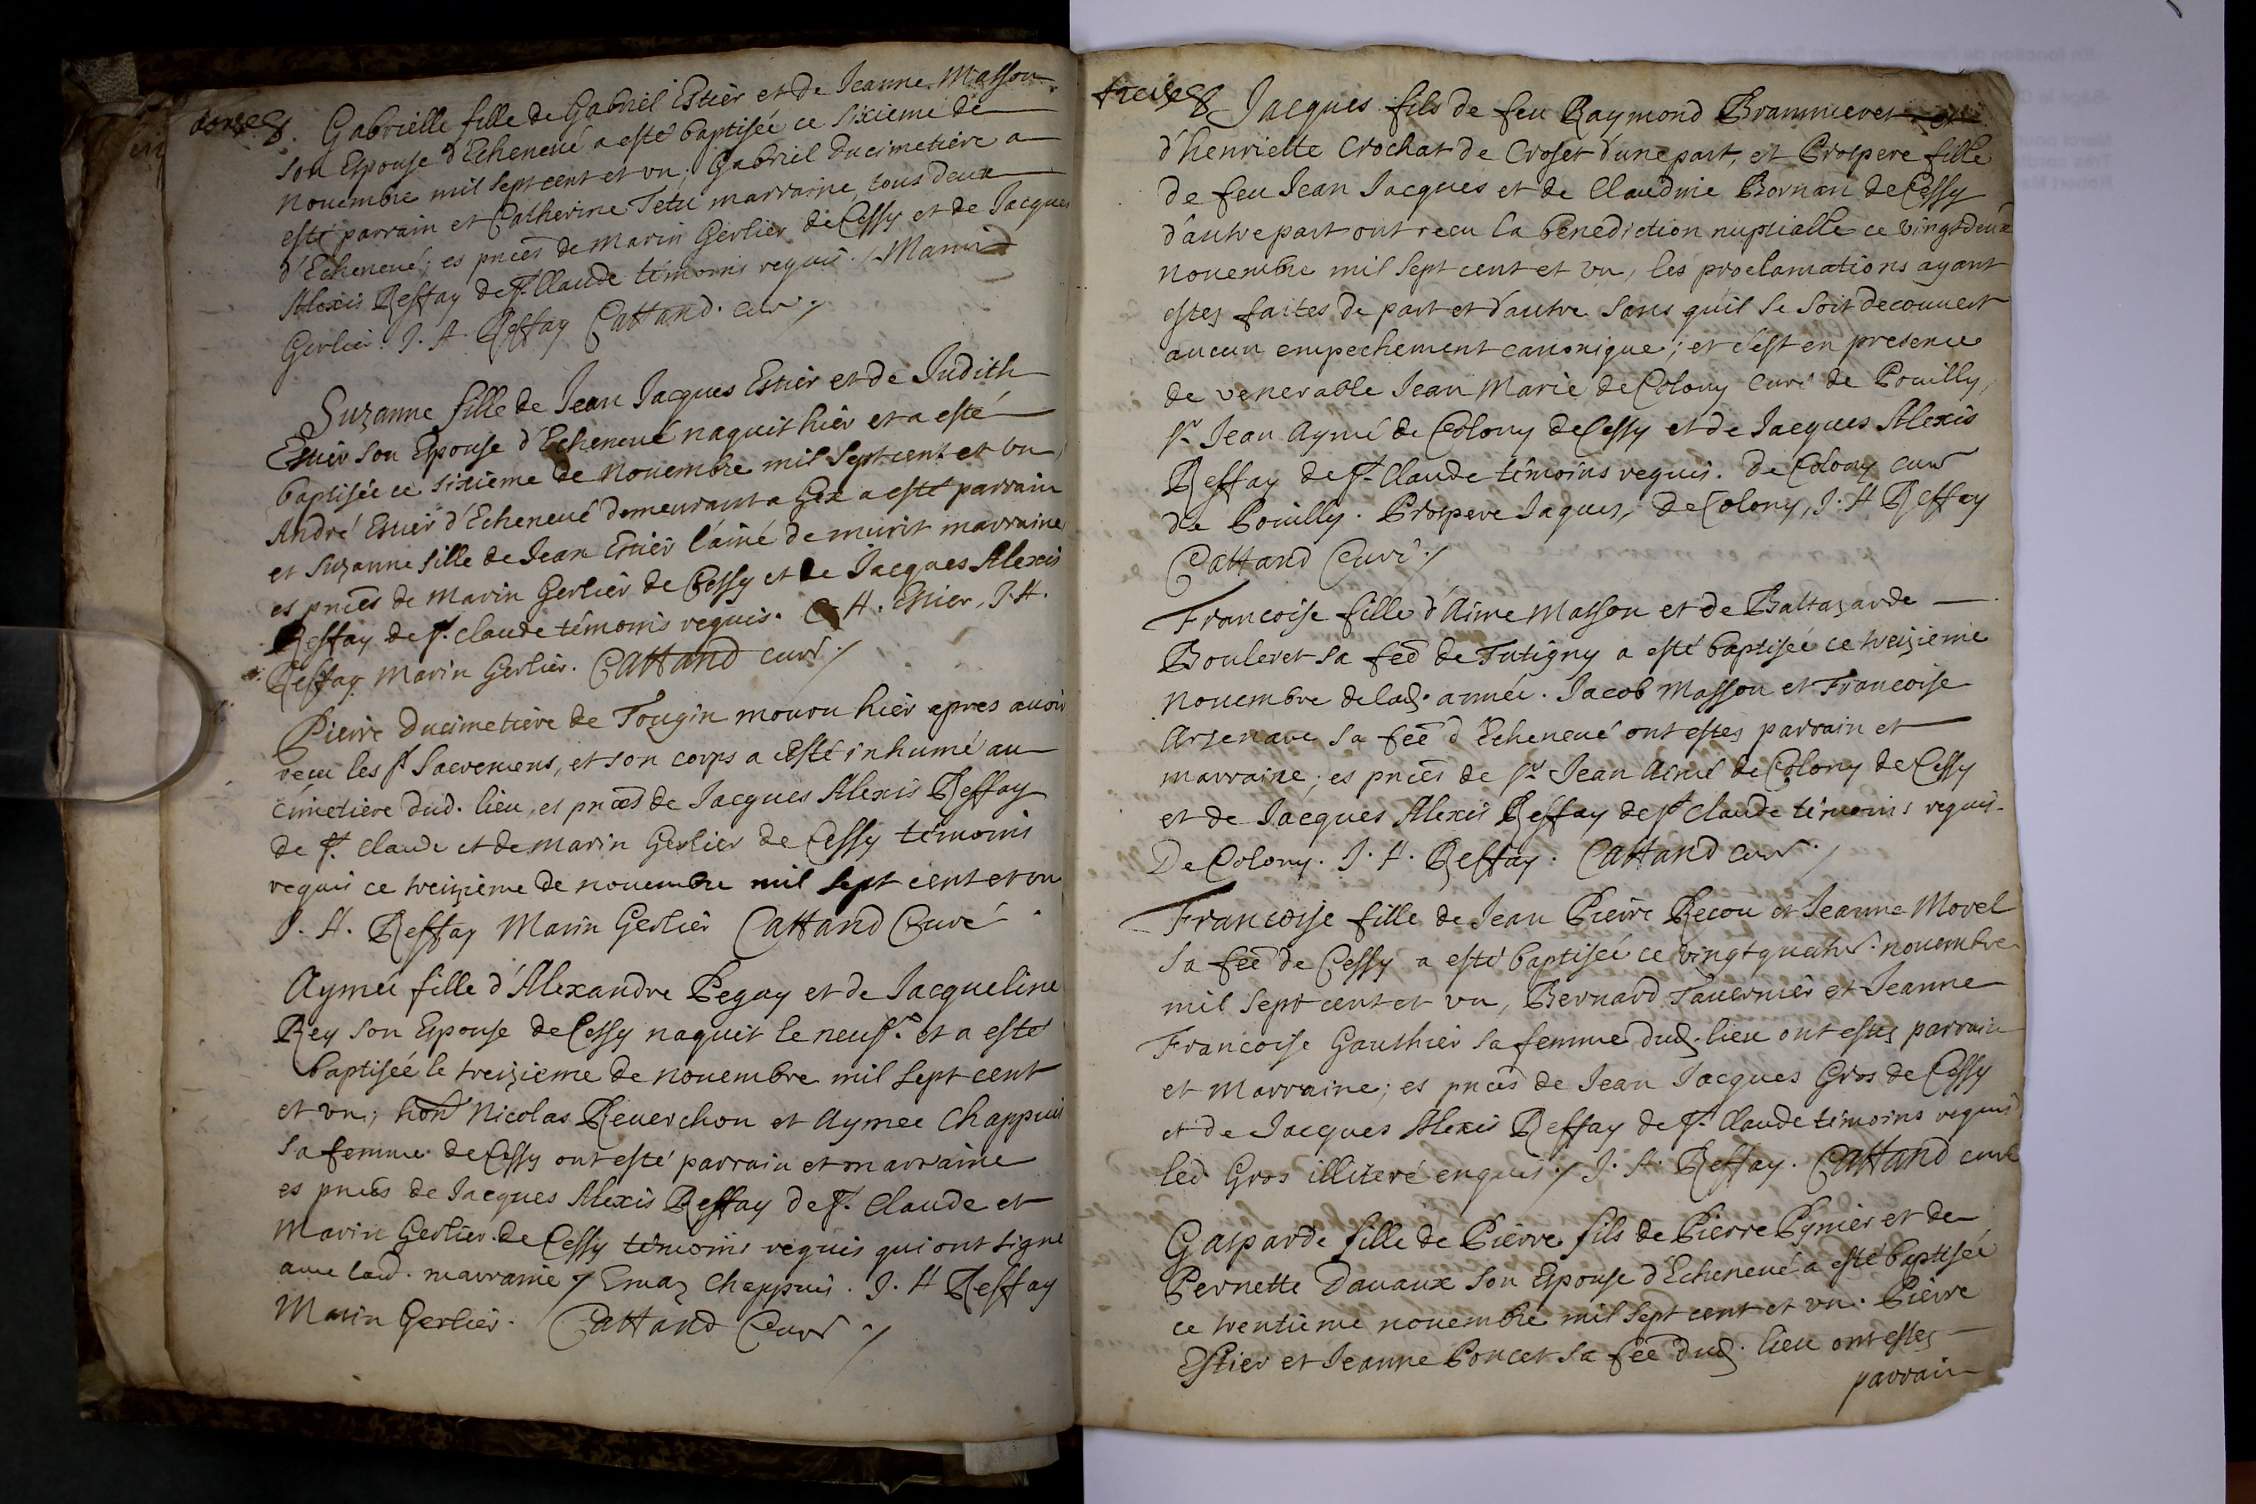 Gabrielle fille de Gabriel Estier et de Jeanne Masson
son Espouse d'Echeneué a esté baptisée ce sixieme de
nouembre mil sept cent et vn. Gabriel Ducimetière a
esté parrain et Catherine Tetu marraine, tous deux
d'Echeneué; es pnces de Marin Gerlier de Cessy et de Jacques
Alexis Reffay de st. Claude témoins requis. / Marin
Gerlier. J. A. Reffay Cattand. cur /
Suzanne fille de Jean Jacques Estier et de Judith
Estier son Epouse d'Echeneué naquit hier et a esté
baptisée ce sixieme de nouembre mil sept cent et vn,
André Estier d'Echeneué demeurant a Gex a esté parrain
et Suzanne fille de Jean Estier l'ainé de murit marraine
es pnces de Marin Gerlier de Cessy et de Jacques Alexis
Reffay de st. claude témoins requis. A. Estier, J. A.
Reffay Marin Gerlier. Cattand curé /
Pierre Ducimetière de Tougin mouru hier apres auoir
receu les st Sacremens, et son corps a esté inhumé au
cimetiere dud. lieu, es pnces de Jacques Alexis Reffay
de st. Claude et de Marin Gerlier de Cessy témoins
requis ce treizième de nouembre mil sept cent et vn
J. A. Reffay Marin Gerlier Cattand Curé
Aymée fille d'Alexandre Pegay et de Jacqueline
Rey son Epouse de Cessy naquit le neuf.e et a esté
baptisée le treizieme de nouembre mil sept cent
et vn; hon Nicolas Reuerchon et Aymee Chappuis
sa femme de Cessy ont esté parrain et marraine
es pnces de Jacques Alexis Reffay de st. Claude et
Marin Gerlier de Cessy témoins requis qui ont signe
auec lad. marraine / Chappuis. J. A Reffay
Marin Gerlier. Cattand Curé /
treize Jacques fils de feu Raymond
d'henriette Crochat de Croset d'une part, et Prospere fille
de feu Jean Jacques et de Claudine Bornan de Cessy
d'autre part ont receu la benediction nuptialle ce vingtdeux
nouembre mil sept cent et vn, les proclamations ayant
estes faites de part et d'autre sans qu'il se soit decouuert
aucun empechement canonique; et c'est en presence
de venerable Jean Marie de Colony curé de Pouilly,
sr. Jean Aymé de Colony de Cessy et de Jacques Alexis
Reffay de st. Claude témoins requis. De Colony curé
de Pouilly. Prospere Jaques, De Colony, J. A Reffay
Cattand Curé /
Francoise fille d'Aime Masson et de Baltazarde
Bouleret sa feé de Tutigny a esté baptisée ce treizieme
nouembre de lad. année. Jacob Masson et Francoise
Arsenaue sa feé d'Echeneué ont estes parrain et
marraine; es pnces de sr. Jean Aimé de Colony de Cessy
et de Jacques Alexis Reffay de st Claude témoins requis.
De Colony. J. A. Reffay. Cattand curé /
Francoise fille de Jean Pierre Recou et Jeanne Morel
sa feé de Cessy a esté baptisée ce vingtquatre nouembre
mil sept cent et vn, Bernard Tauernier et Jeanne
Francoise Gauthier sa femme dud. lieu ont estes parrain
et marraine; es pnces de Jean Jacques Gros de Cessy
et de Jacques Alexis Reffay de st. Claude témoins requis
led Gros illiteré enquis / J. A. Reffay. Cattand curé
Gasparde fille de Pierre fils de Pierre Pynier et de
Pernette Dauaux son Epouse d'Echeneué a esté baptisée
ce trentieme nouembre mil sept cent et vn. Pierre
Estier et Jeanne Poncet sa feé dud. lieu ont estes
parrain